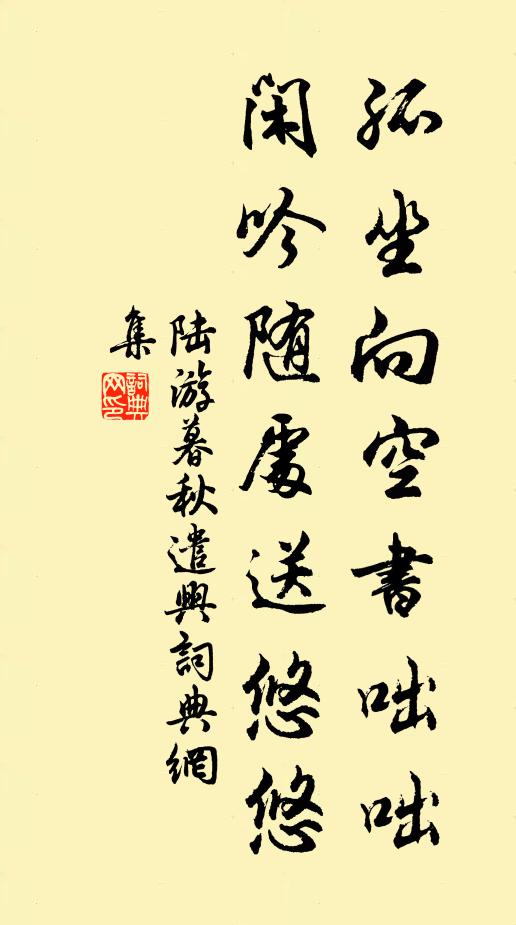 孤坐向空書咄咄
閑吟随處送悠悠
陆游暮秋遣興詞典網
集
詞典
网印